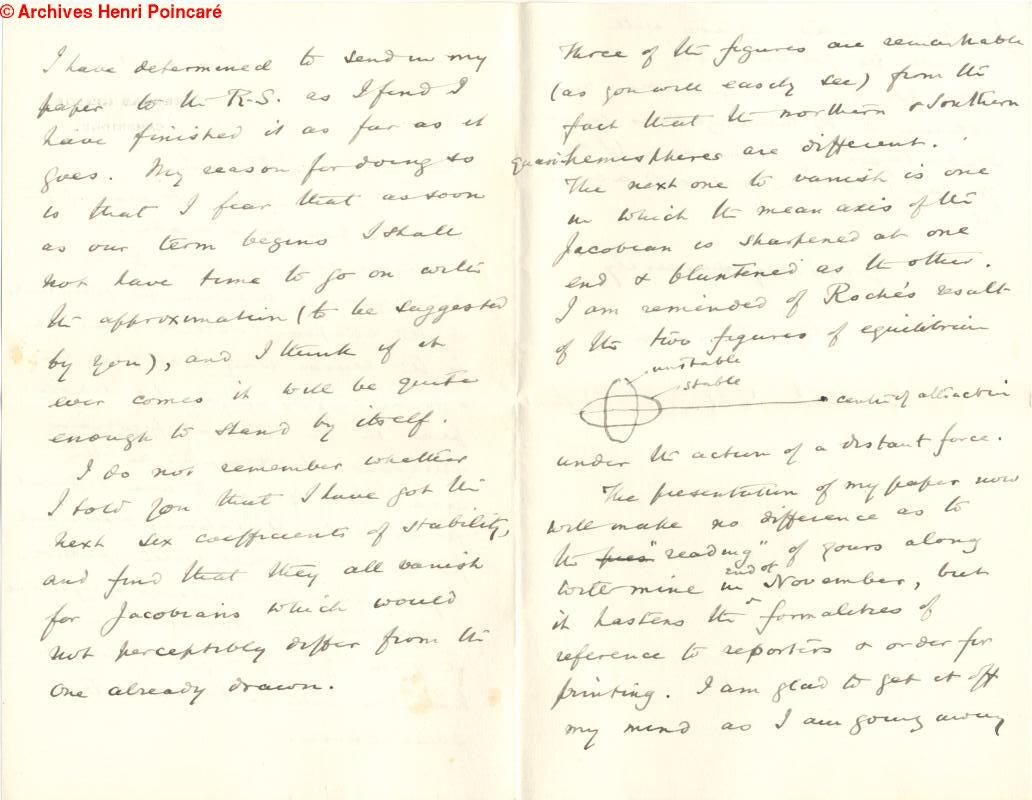 © Archives Henri Poincaré
I have determined to send in my
paper to the R.S. as I find I
have finished it as far as it
goes. My reason for doing so
is that I fear that as soon
as our term begins I shall
not have time to go on with
the approximation (to be suggested
by you), and I think if it
ever comes it will be quite
enough to stand by itself.
I do not remember whether
I told you that I have got the
next six coefficients of stability,
and find that they all vanish
for Jacobians which would
not perceptibly differ from the
one already drawn.
Three of the figures are remarkable
(as you will easily see) from the
fact that the northern & southern
quasi hemispheres are different.
The next one to vanish is one
in which the mean axis of the
Jacobian is sharpened at one
end & bluntened as the other.
I am reminded of Roche's result
of the two figures of equilibrium
unstable
stable
centre of attraction
under the action of a distant force.
The presentation of my paper now
will make no difference as to
the "reading" of yours along
with mine in end of November, but
it hastens the formalities of
reference to reporters & order for
printing. I am glad to get it off
my mind as I am going away